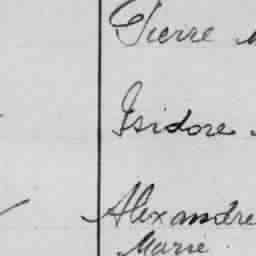 Pierre
Isidore
Alexandre
Marie